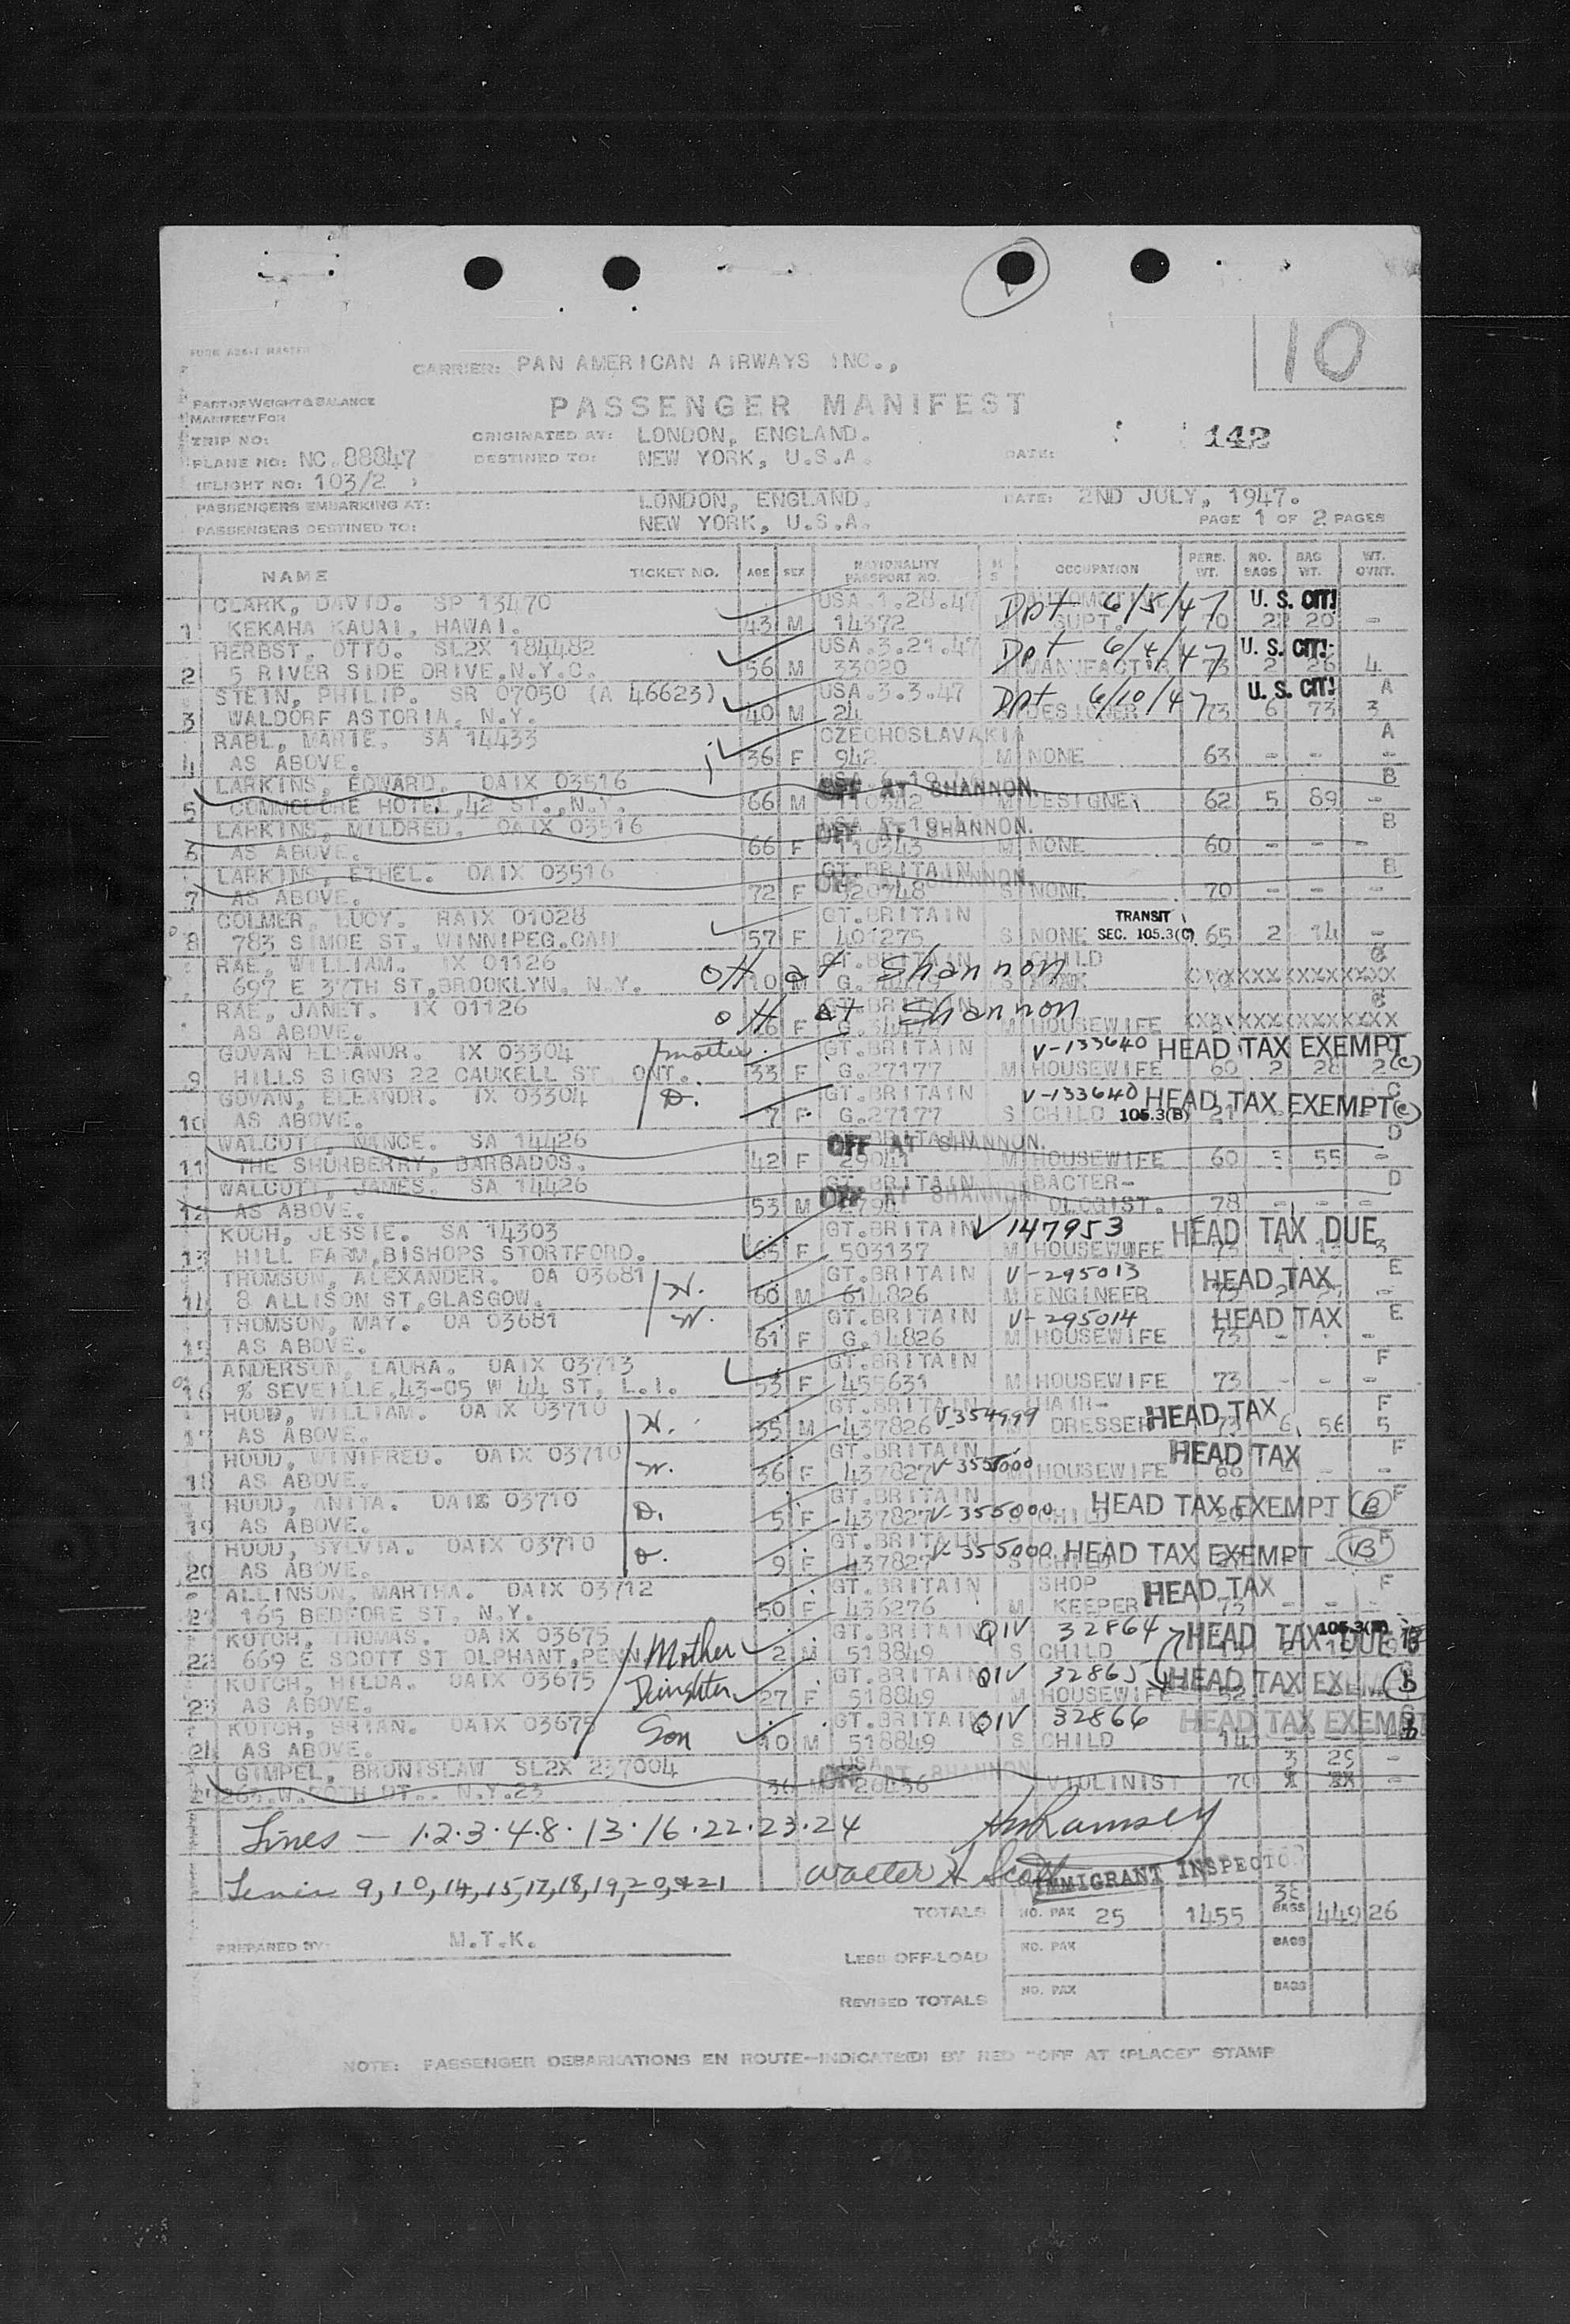 10
FORM ADS-1 MASTER
CARRIER: PAN AMERICAN AIRWAYS INC.,
PART OF WEIGHT & BALANCE
MANIFEST FOR
PASSENGER MANIFEST
TRIP NO:
ORIGINATED AT: LONDON, ENGLAND.
142
PLANE NO: NC.88847
DESTINED TO: NEW YORK, U.S.A.
DATE:
(FLIGHT NO: 103/2 )
PASSENGERS EMBARKING AT: LONDON, ENGLAND. DATE: 2ND JULY, 1947.
PASSENGERS DESTINED TO: NEW YORK, U.S.A. PAGE 1 OF 2 PAGES
NAME TICKET NO. AGE SEX NATIONALITY PASSPORT NO. M S OCCUPATION PERS. WT. NO. BAGS BAG WT. WT. OVNT.
CLARK, DAVID. SP 13470 USA.1.28.47 Dpt 6/5/47 U. S. CIT!
1 KEKAHA KAUAI, HAWAI. 43 M 14372 SUPT. 70 22 20 -
HERBST, OTTO. SL2X 184482 USA.3.21.47 Dpt 6/4/47 U. S. CIT!
2 5 RIVER SIDE DRIVE,N.Y.C. 56 M 33020 MANUFACTUR 73 2 26 4
STEIN, PHILIP. SR 07050 (A 46623) USA.3.3.47 Dpt 6/10/47 U. S. CIT! A
3 WALDORF ASTORIA, N.Y. 40 M 24 DESIGNER 73 6 73 3
RABL, MARIE. SA 14433 CZECHOSLAVAKIA A
4 AS ABOVE. 36 F 942 M NONE 63 - - -
LARKINS, EDWARD. OAIX 03516 OFF AT SHANNON. B
5 COMMODORE HOTEL,42 ST.,N.Y. 66 M 110342 M DESIGNER 62 5 89 -
LARKINS, MILDRED. OAIX 03516 OFF AT SHANNON. B
6 AS ABOVE. 66 F 110343 M NONE 60 - - -
LARKINS, ETHEL. OAIX 03516 GT.BRITAIN OFF SHANNON B
7 AS ABOVE. 72 F 320748 S NONE 70 - - -
COLMER, LUCY. RAIX 01028 GT.BRITAIN TRANSIT
8 783 SIMOE ST, WINNIPEG.CAN 57 F 401275 S NONE SEC. 105.3(C) 65 2 14 -
RAE, WILLIAM. IX 01126 GT.BRITAIN CHILD C
697 E 37TH ST,BROOKLYN, N.Y. off at Shannon 10 M S
RAE, JANET. IX 01126 GT.BRITAIN C
AS ABOVE. off at Shannon F M HOUSEWIFE
GOVAN ELEANOR. IX 03304 mother GT.BRITAIN V-133640 HEAD TAX EXEMPT
9 HILLS SIGNS 22 CAUKELL ST, ONT. 33 F G.27177 M HOUSEWIFE 60 2 28 2 (C)
GOVAN, ELEANOR. IX 03304 D. GT.BRITAIN V-133640 HEAD TAX EXEMPT (C)
10 AS ABOVE. 7 F G.27177 S CHILD 105.3(B) 21
WALCOTT, NANCE. SA 14426 OFF AT SHANNON. D
11 THE SHURBERRY, BARBADOS. 42 F 29041 M HOUSEWIFE 60 55 -
WALCOTT, JAMES. SA 14426 GT.BRITAIN OFF AT SHANNON BACTER- D
12 AS ABOVE. 53 M OLOGIST. 78 - - -
KOCH, JESSIE. SA 14303 GT.BRITAIN V147953 HEAD TAX DUE
13 HILL FARM,BISHOPS STORTFORD. 65 F 503137 M HOUSEWIFE 73
THOMSON, ALEXANDER. OA 03681 H. GT.BRITAIN V-295013 HEAD TAX E
14 8 ALLISON ST,GLASGOW. 60 M 614826 M ENGINEER -
THOMSON, MAY. OA 03681 W. GT.BRITAIN V-295014 HEAD TAX E
15 AS ABOVE. 61 F G.14826 M HOUSEWIFE 73 - - -
ANDERSON, LAURA. OAIX 03713 GT.BRITAIN F
16 % SEVEILLE,43-05 W 44 ST, L.I. 53 F 455631 M HOUSEWIFE 73 - - -
HOOD, WILLIAM. OAIX 03710 H. GT.BRITAIN V354999 HAIR- HEAD TAX F
17 AS ABOVE. 35 M 437826 DRESSER 73 6 56 5
HOOD, WINIFRED. OAIX 03710 W. GT.BRITAIN V-355000 HEAD TAX F
18 AS ABOVE. 36 F 437827 M HOUSEWIFE 66 - - -
HOOD, ANITA. OAIX 03710 D. GT.BRITAIN HEAD TAX EXEMPT (B) F
19 AS ABOVE. 5 F 437827 V-355000 CHILD
HOOD, SYLVIA. OAIX 03710 D. GT.BRITAIN V-355000 HEAD TAX EXEMPT (B) F
20 AS ABOVE. 9 F 437827 S CHILD
ALLINSON, MARTHA. OAIX 03712 GT.BRITAIN SHOP HEAD TAX F
21 165 BEDFORE ST, N.Y. 50 F 436276 M KEEPER 73 - - -
KOTCH, THOMAS. OAIX 03675 GT.BRITAIN QIV 32864 HEAD TAX DUE 105.3(B)
22 669 E SCOTT ST OLPHANT,PENN Mother 2 M 518849 S CHILD
KOTCH, HILDA. OAIX 03675 GT.BRITAIN QIV 32865 HEAD TAX EXEM (B)
23 AS ABOVE. Daughter 27 F 518849 M HOUSEWIFE
KOTCH, BRIAN. OAIX 03675 GT.BRITAIN QIV 32866 HEAD TAX EXEMPT
24 AS ABOVE. Son 10 M 518849 S CHILD 14
GIMPEL, BRONISLAW SL2X 237004 USA OFF AT SHANNON 3 25 -
N.Y.23 36 M 20436 VIOLINIST 70
Lines — 1.2.3.4.8.13.16.22.23.24 Ramsey
9,10,14,15,17,18,19,20,&21 Walter H Scott
IMMIGRANT INSPECTOR
TOTALS NO. PAX 25 1455 BAGS 449 26
PREPARED BY: M.T.K.
LESS OFF-LOAD NO. PAX BAGS
REVISED TOTALS NO. PAX BAGS
NOTE: PASSENGER DEBARKATIONS EN ROUTE-INDICATE(D) BY RED "OFF AT (PLACE)" STAMP